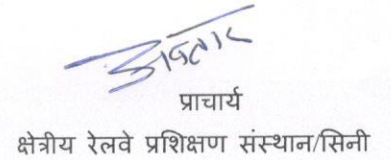 प्राचार्य
क्षेत्रीय रेलवे प्रशिक्षण संस्थान/सिनी